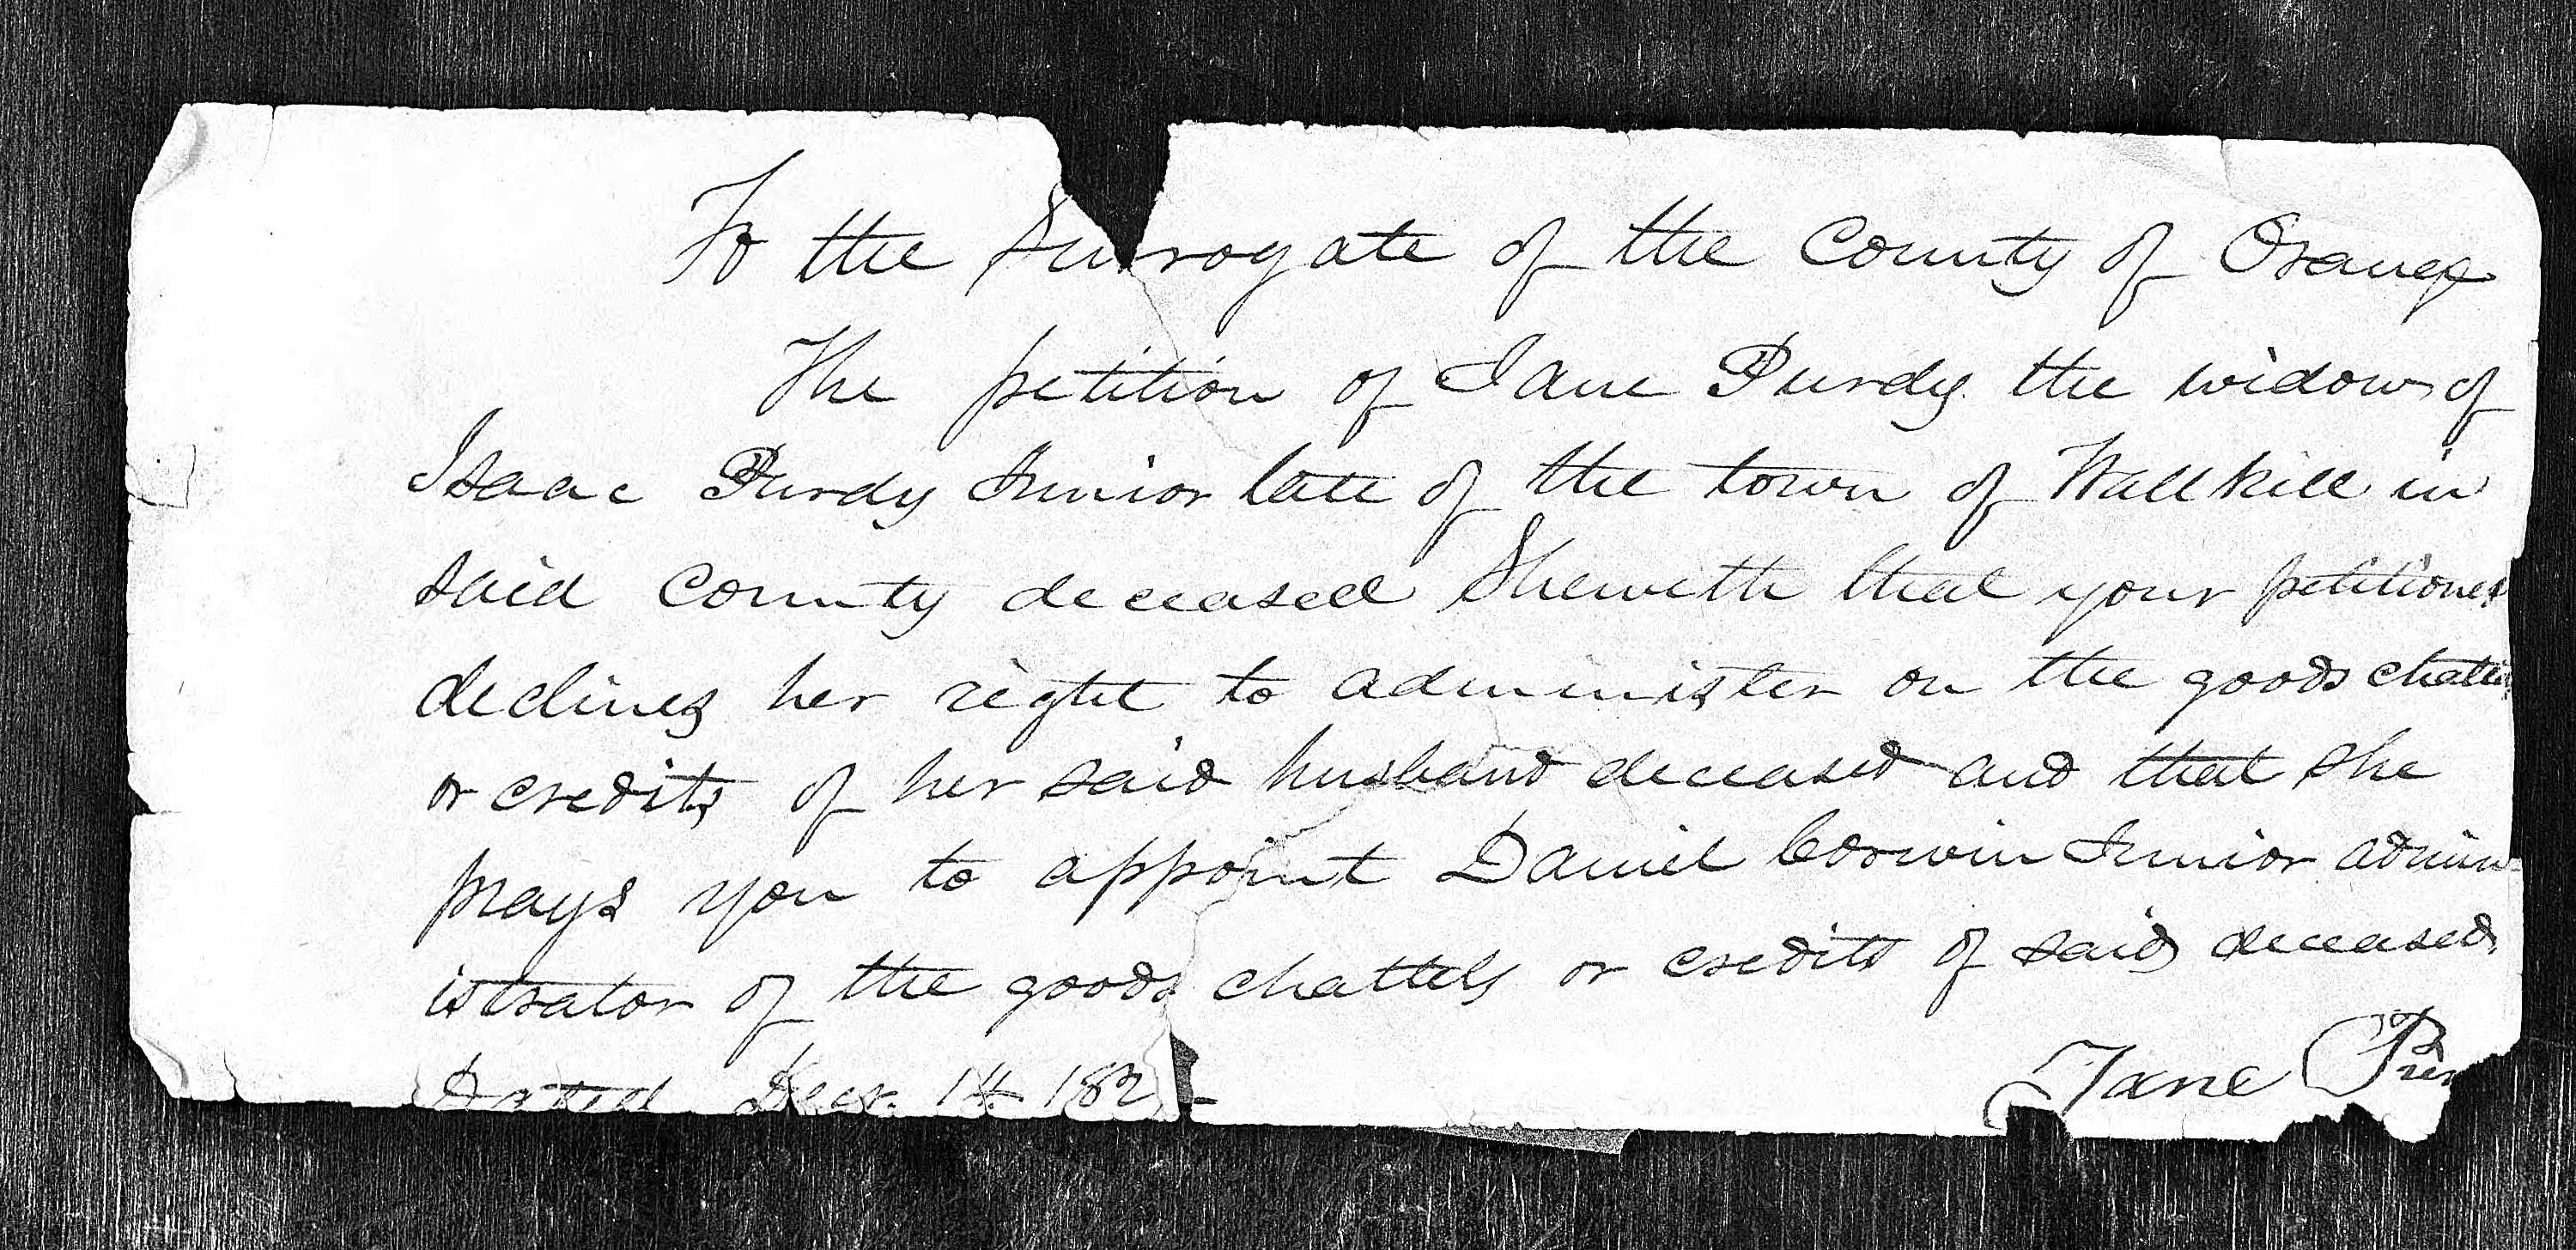 To the Surrogate of the County of Orange
The petition of Jane Purdy the widow of
Isaac Purdy Junior late of the town of Wallkill in
said County deceased Sheweth that your petitioner
declines her right to administer on the goods
or credits of her said husband deceased and that she
prays you to appoint Daniel Corwin Junior admin
istrator of the goods chattels or credits of said deceased
Dated Decr. 14
Jane